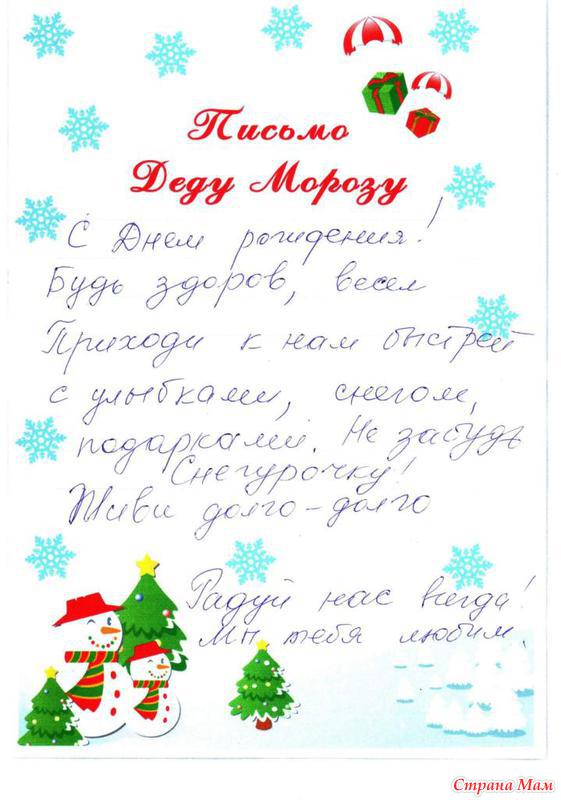 Письмо
Деду Морозу
С Днем рождения!
Будь здоров, весел
Приходи к нам быстрей
с улыбками, снегом,
подарками. Не забудь
Снегурочку!
Живи долго-долго
Радуй нас всегда!
Мы тебя любим.
Страна Мам